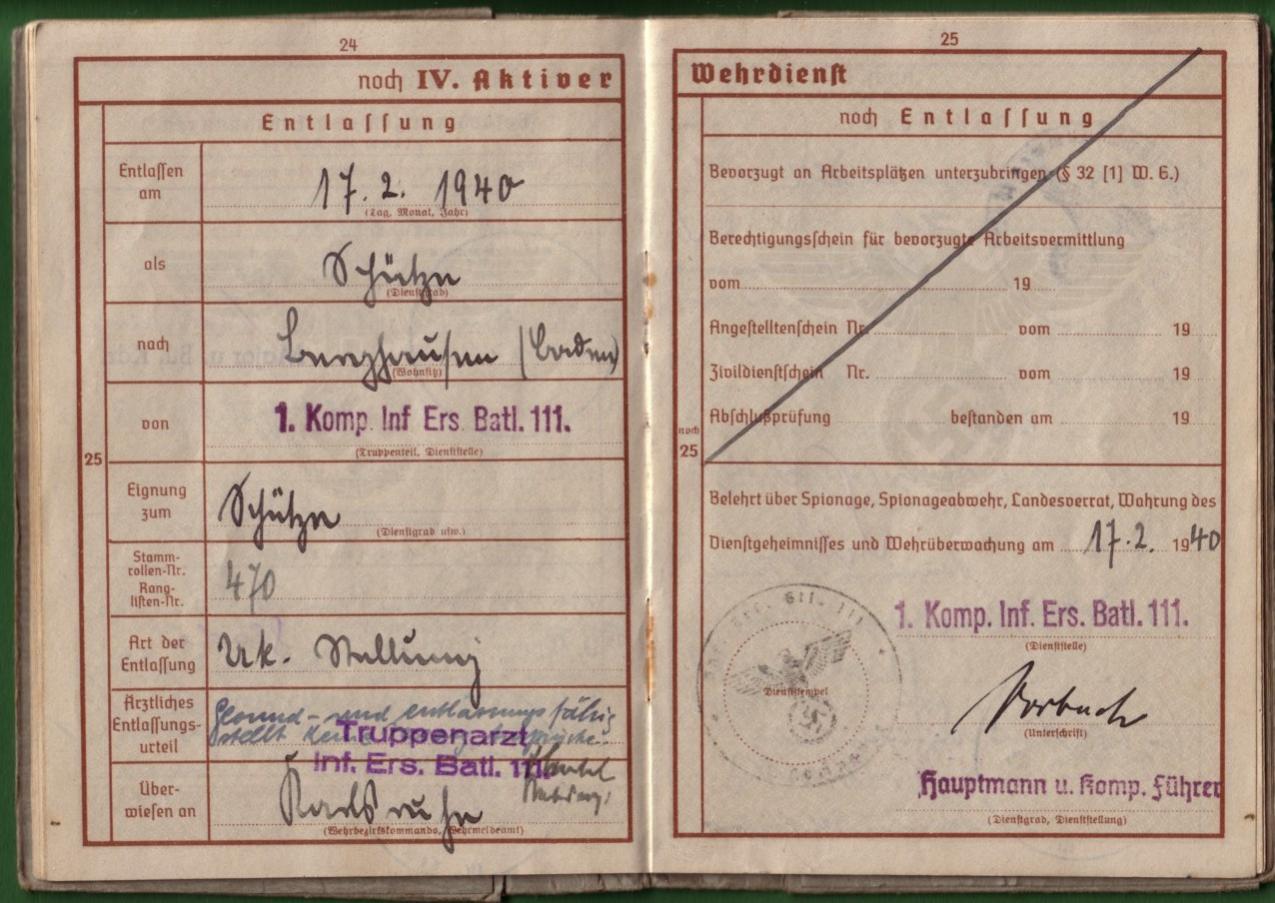 24
noch IV. Aktiver
Entlassung
Entlassen
am
17. 2. 1940
(Tag, Monat, Jahr)
als
Schütze
(Dienstgrad)
nach
Berghausen (Baden)
(Wohnsitz)
von
1. Komp. Inf Ers. Batl. 111.
(Truppenteil, Dienststelle)
25
Eignung
zum
Schütze
(Dienstgrad usw.)
Stamm-
rollen-Nr.
Rang-
listen-Nr.
470
Art der
Entlassung
Uk. Stellung
Ärztliches
Entlassungs-
urteil
Gesund- und entlassungsfähig
stellt keine
Truppenarzt
Inf. Ers. Batl. 111.
Über-
wiesen an
Karlsruhe
(Wehrbezirkskommando, Wehrmeldeamt)
25
Wehrdienst
noch Entlassung
Bevorzugt an Arbeitsplätzen unterzubringen (§ 32 [1] W. G.)
Berechtigungsschein für bevorzugte Arbeitsvermittlung
vom 19
Angestelltenschein Nr. vom 19
Zivildienstschein Nr. vom 19
Abschlußprüfung bestanden am 19
noch
25
Belehrt über Spionage, Spionageabwehr, Landesverrat, Wahrung des
Dienstgeheimnisses und Wehrüberwachung am 17.2. 1940
1. Komp. Inf. Ers. Batl. 111.
(Dienststelle)
Dienststempel
(Unterschrift)
Hauptmann u. Komp. Führer
(Dienstgrad, Dienststellung)